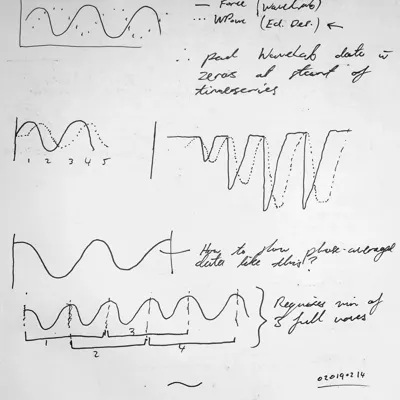 — Force (WaveLab)
... WProbe (Ed. Des.) ←
∴ pad WaveLab data w
zeros at start of
timeseries
1 2 3 4 5
How to show phase-averaged
data like this?
Requires min of
3 full waves
1 3
2 4
020190214